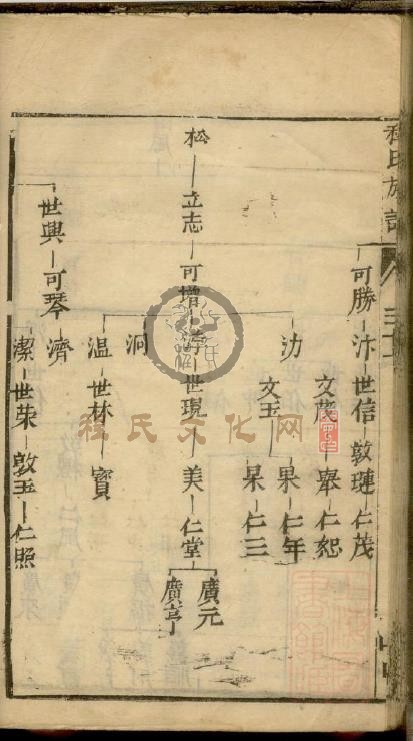 程氏族譜
可勝 汴 世信 敦璉 仁茂
文茂 舉 仁恕
沩 文玉 果 仁年
杲 仁三
松 立志 可增 世現 美 仁堂 廣元
廣亨
泂
温 世林 寶
世興 可琴 濟
潔 世荣 敦玉 仁照
程氏文化网